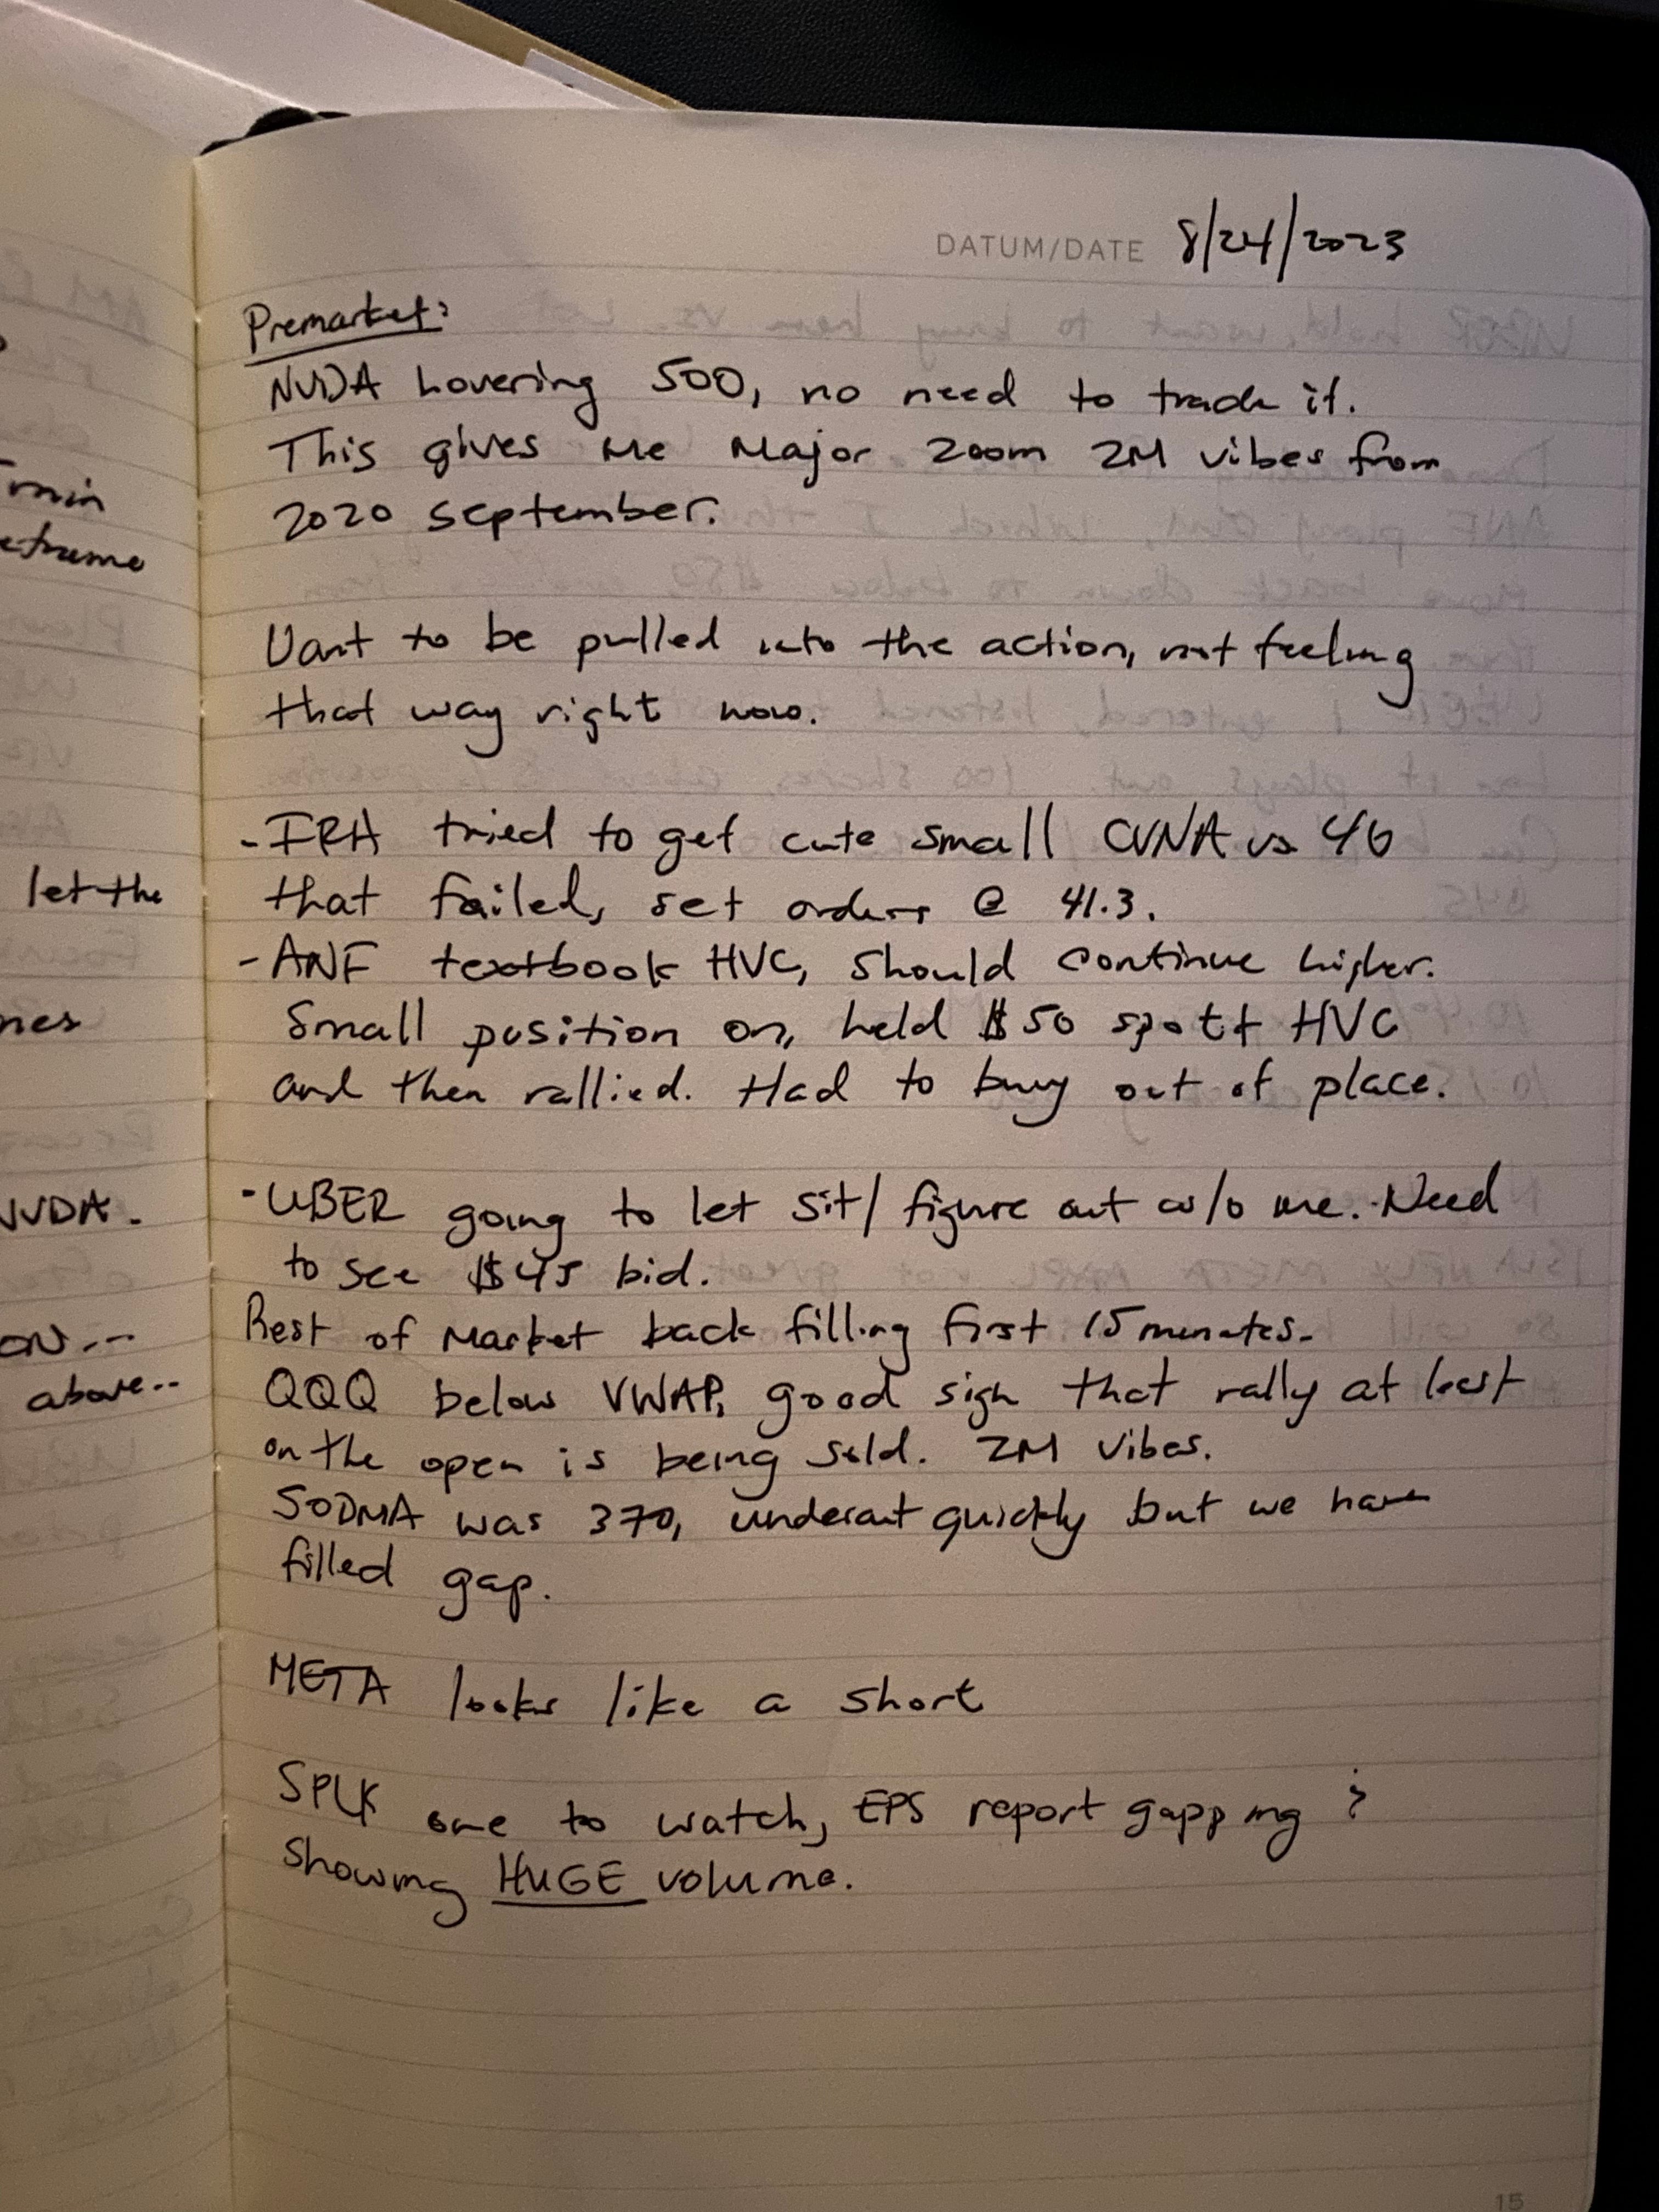 DATUM/DATE 8/24/2023
Premarket:
NVDA hovering 500, no need to trade it.
This gives me Major Zoom ZM vibes from
2020 september.
Want to be pulled into the action, not feeling
that way right now.
-IRA tried to get cute small CVNA vs 46
that failed, set orders @ 41.3.
-ANF textbook HVC, should continue higher.
Small position on, held $50 spot + HVC
and then rallied. Had to buy out of place.
-UBER going to let sit/figure out w/o me. Need
to see $45 bid.
Rest of Market back filling first 15 minutes.
QQQ below VWAP, good sign that rally at least
on the open is being sold. ZM vibes.
50DMA was 370, undercut quickly but we have
filled gap.
META looks like a short
SPLK one to watch, EPS report gapping &
showing HUGE volume.
15
min
extreme
let the
NVDA.
above..